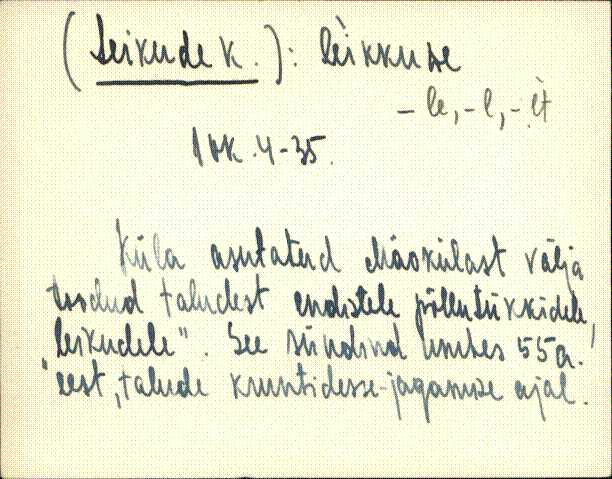 (Leikude k.): lèikkuse
-le, -l, -èt
IVK. 4-35.
Küla asutatud Mäokülast välja
toodud taludest endistele põllutükkidele,
"leikudele". See sündinud umbes 55 a.
eest, talude kruntidesse-jagamise ajal.